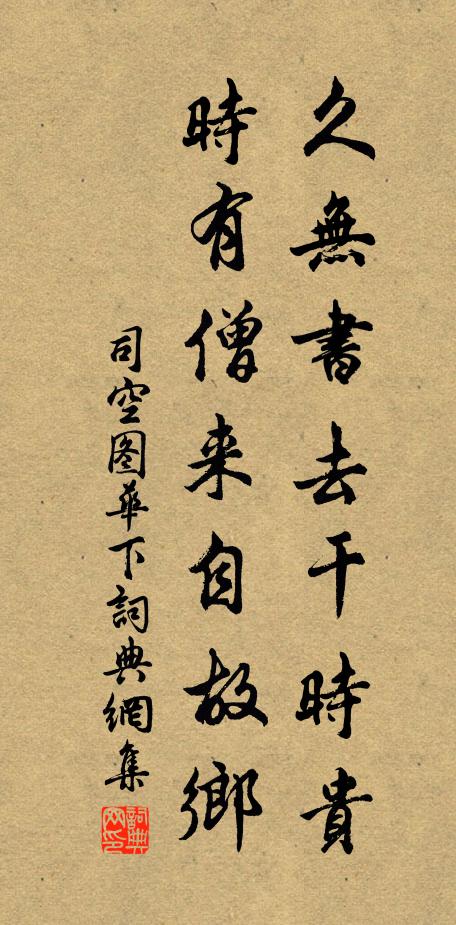 久無書去干時貴
時有僧来自故鄉
司空图華下詞典網集
詞典网印